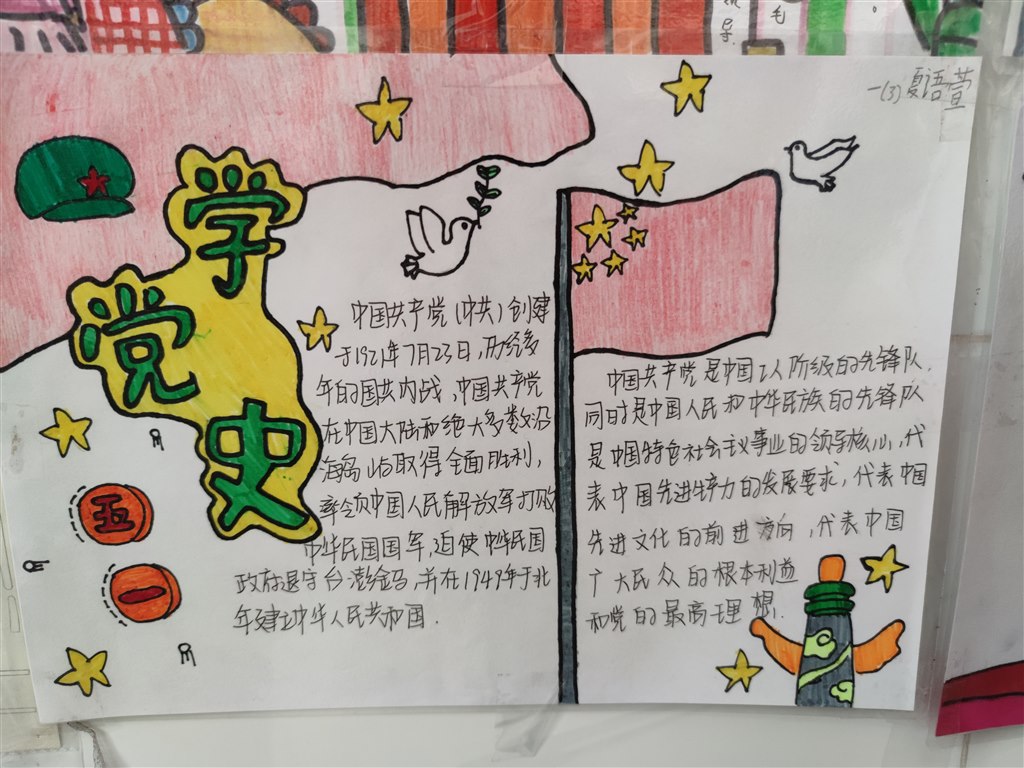 导.
毛
一(3)夏语萱
学
党
史
五
一
中国共产党(中共)创建
于1921年7月23日,历经多
年的国共内战,中国共产党
在中国大陆和绝大多数沿
海岛屿取得全面胜利,
率领中国人民解放军打败
中华民国国军,迫使中华民国
政府退守台澎金马,并在1949年于北
年建立中华人民共和国.
中国共产党是中国工人阶级的先锋队,
同时是中国人民和中华民族的先锋队
是中国特色社会主义事业的领导核心,代
表中国先进生产力的发展要求,代表中国
先进文化的前进方向,代表中国
广大民众的根本利益
和党的最高理想.